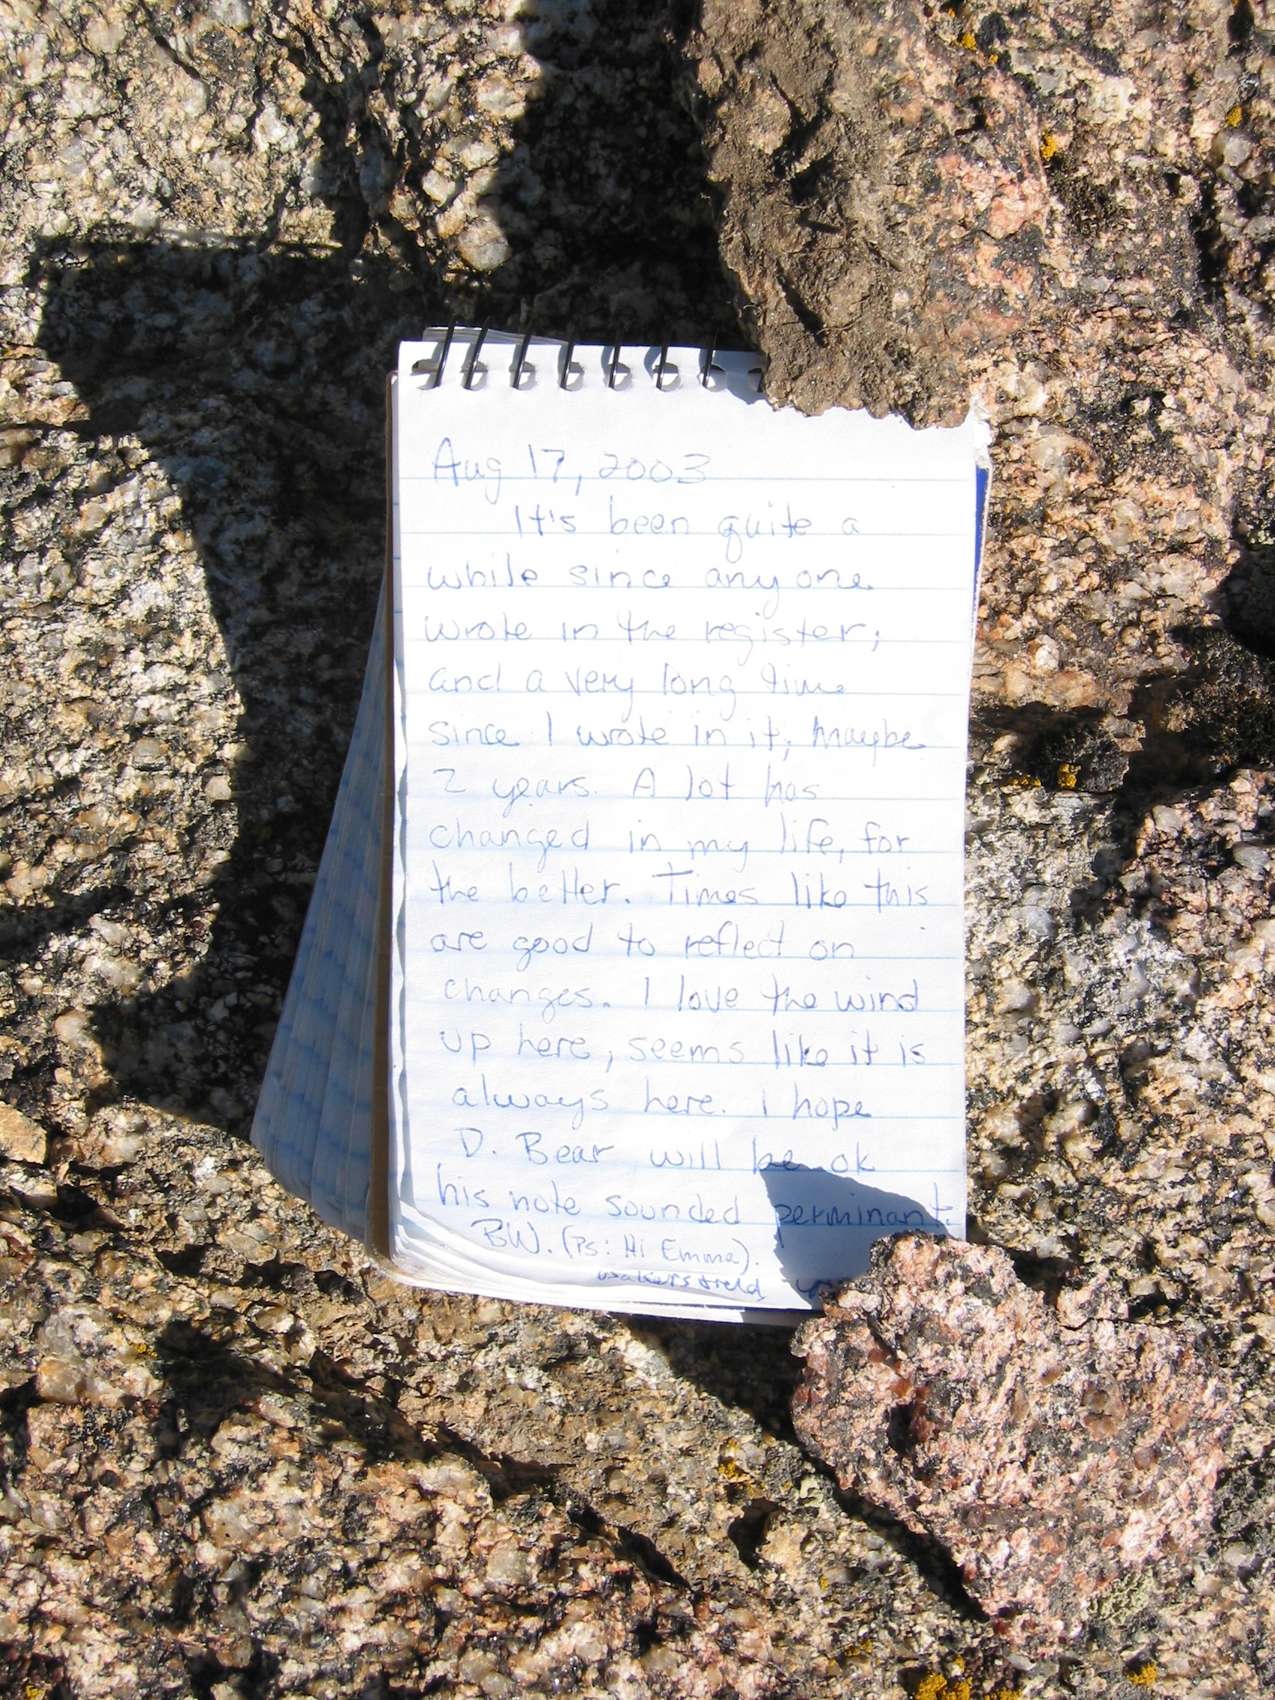 Aug 17, 2003
It's been quite a
while since anyone
wrote in the register;
and a very long time
since I wrote in it; maybe
2 years. A lot has
changed in my life, for
the better. Times like this
are good to reflect on
changes. I love the wind
up here, seems like it is
always here. I hope
D. Bear will be ok
his note sounded perminant.
BW. (Ps: Hi Emma).